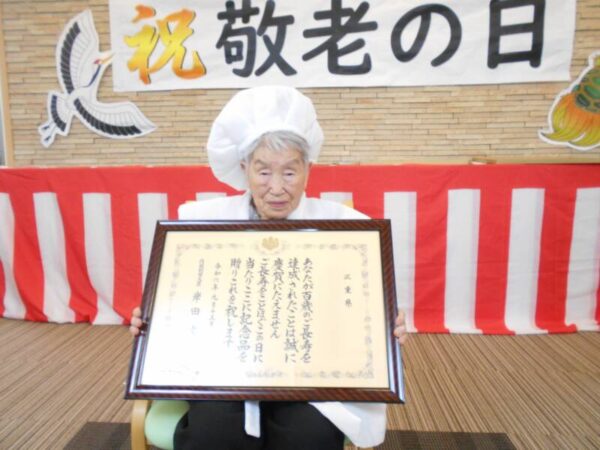 祝 敬老の日
三重県
あなたが百歳のご長寿を
達成されたことは誠に
慶賀にたえません
ご長寿をことほぐこの日に
当たりここに記念品を
贈りこれを祝します
令和六年九月十六日
内閣総理大臣 岸田